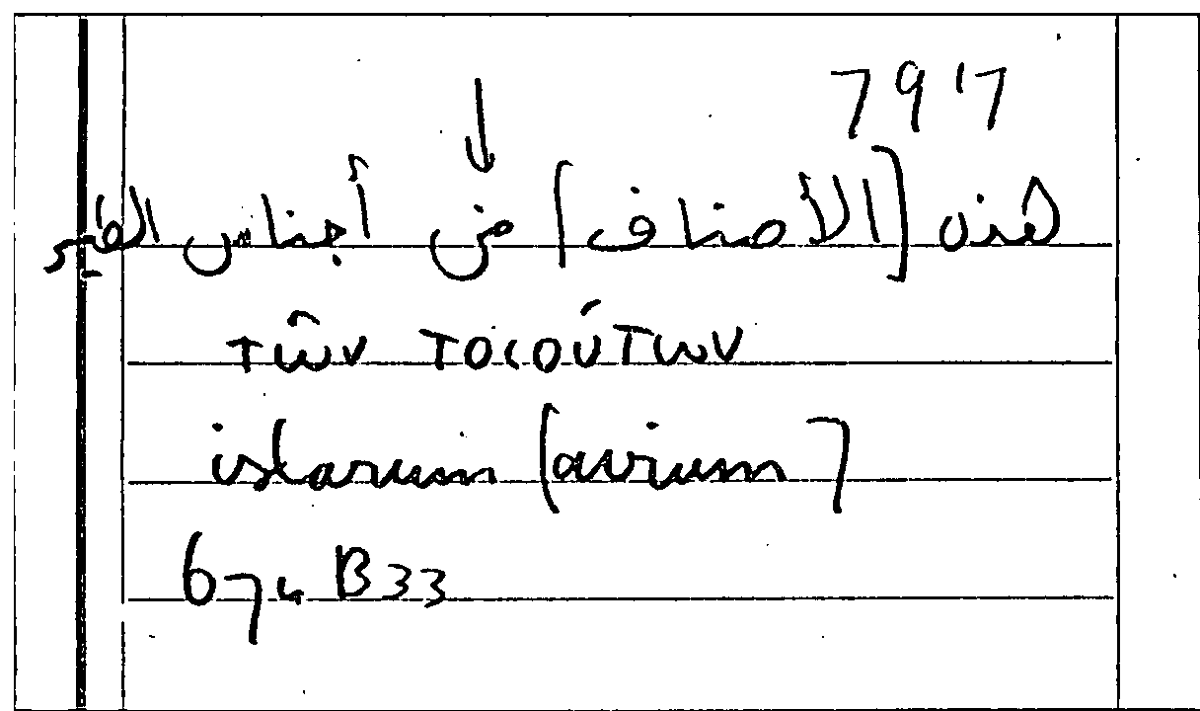 هذه [الأصناف] من أجناس الطير
τῶν τοιούτων
istarum (avium)
674 B 33